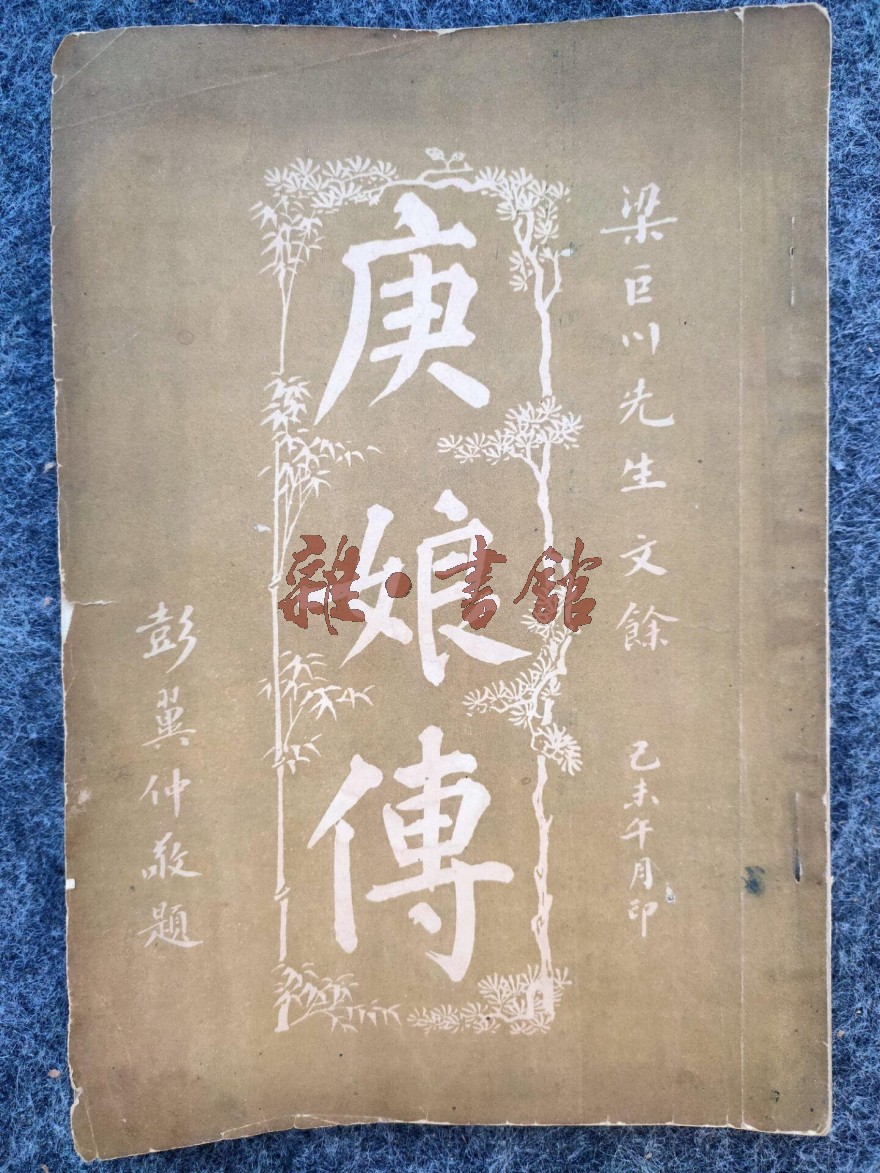 梁巨川先生文餘 己未午月印
庚娘傳
彭翼仲敬題
雜·書館